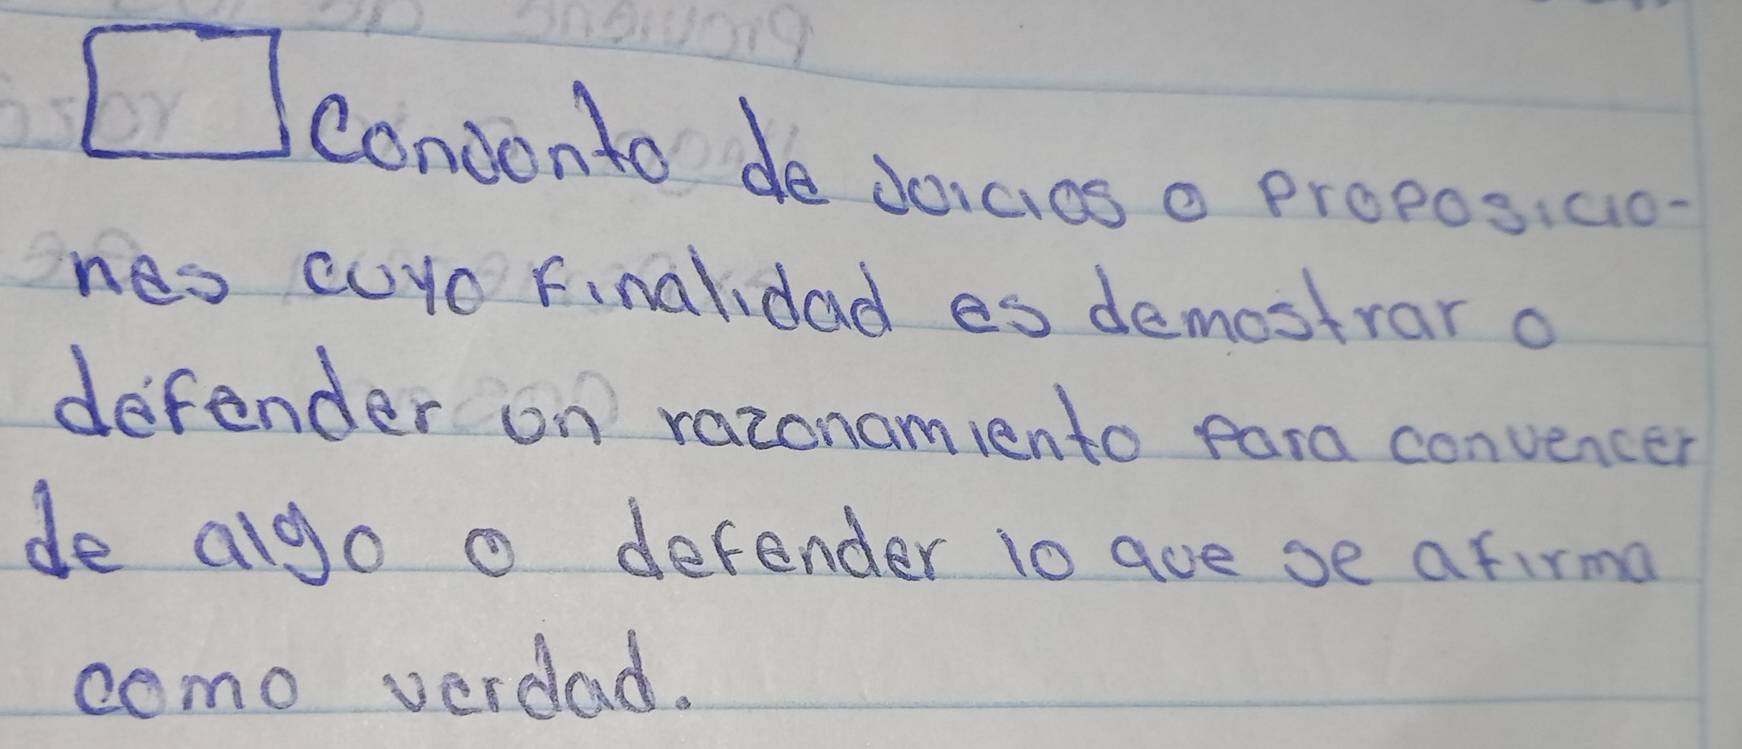 Conjunto de Juicios o Proposicio-
nes cuyo Finalidad es demostrar o
defender un razonamiento Para convencer
de algo o defender lo que se afirma
como verdad.